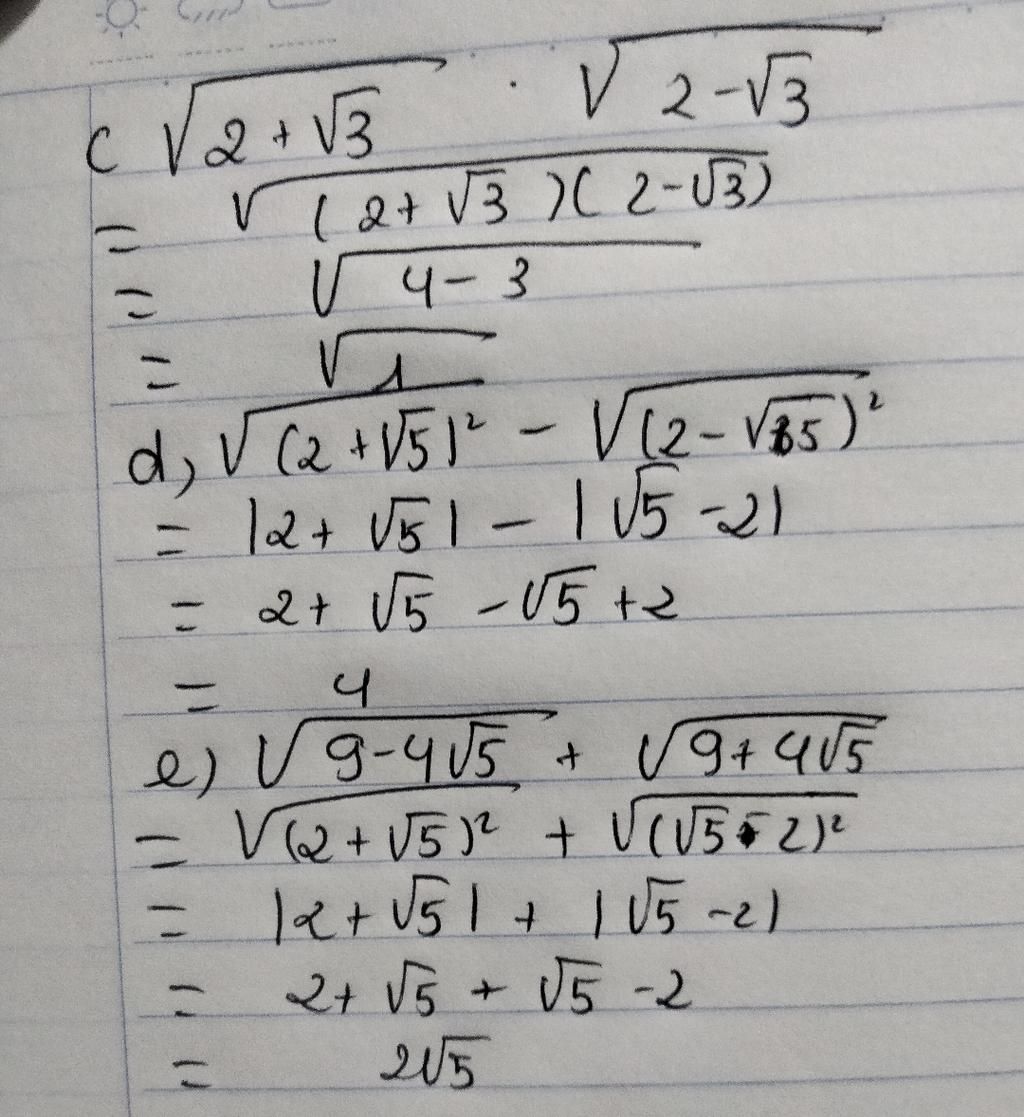 c √(2+√3) . √(2-√3)
= √((2+√3)(2-√3))
= √(4-3)
= √1
d, √((2+√5)²) - √((2-√5)²)
= |2+√5| - |√5-2|
= 2+√5 -√5+2
= 4
e) √(9-4√5) + √(9+4√5)
= √((2+√5)²) + √((√5-2)²)
= |2+√5| + |√5-2|
= 2+√5 + √5-2
= 2√5